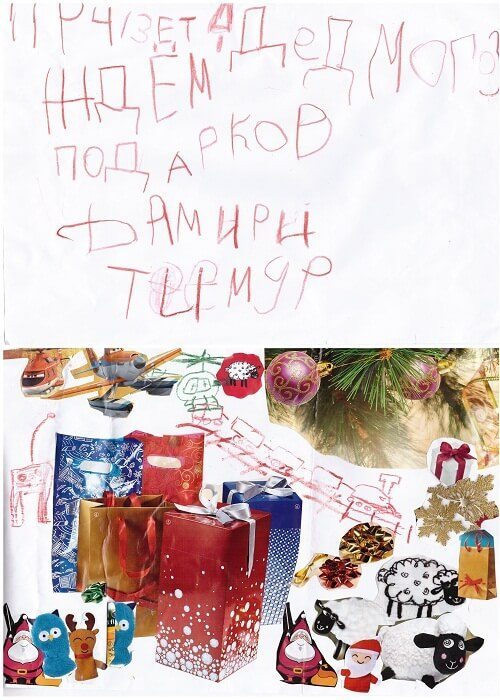 ПРИВЕТ ДЕД МОРО
ЖДЁМ
ПОДАРКОВ
ДАМИР И
ТИМУР